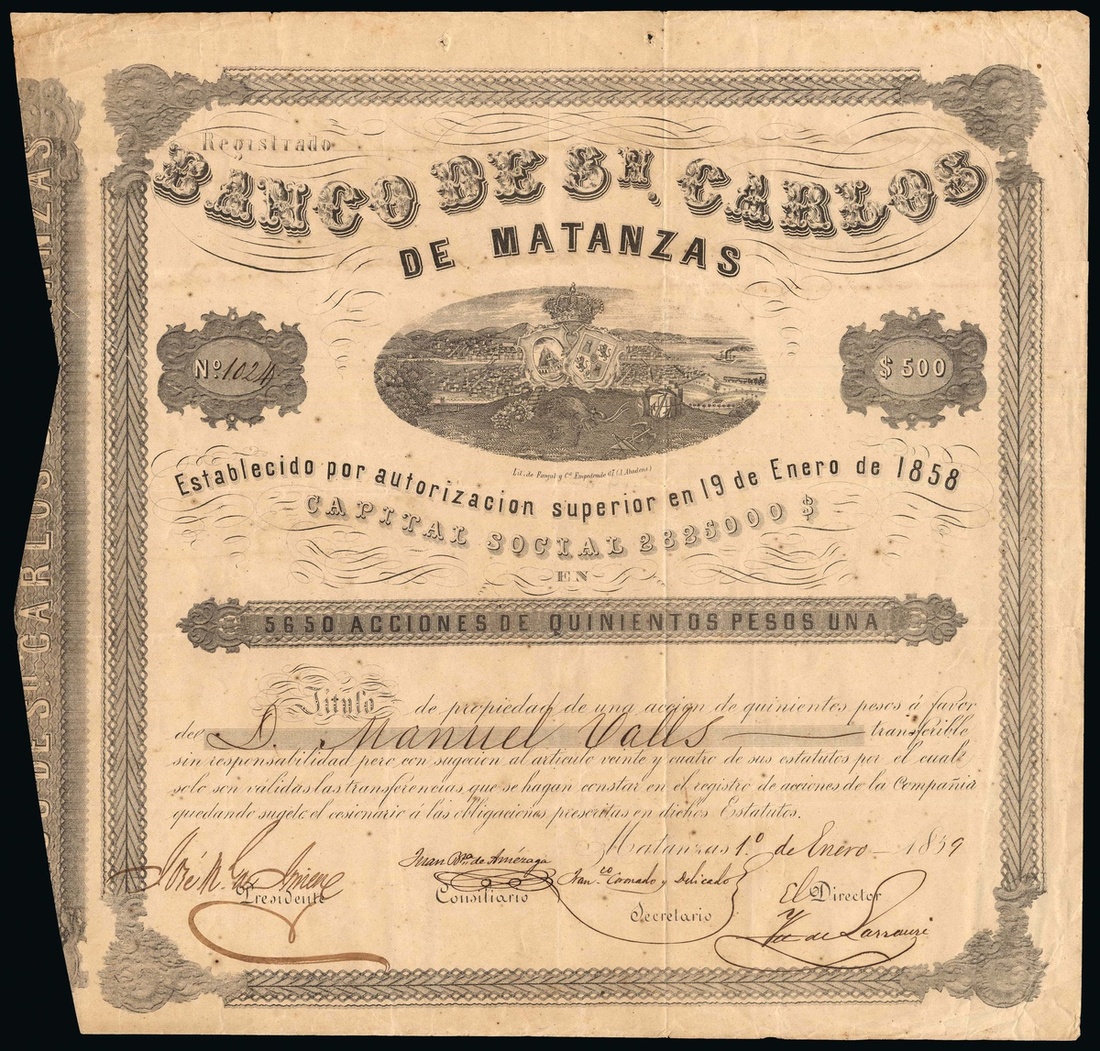 Registrado
BANCO DE SN. CARLOS
DE MATANZAS
No. 1024
$ 500
Lit. de y Cia Empedrado 67 (J. Abadens)
Establecido por autorizacion superior en 19 de Enero de 1858
CAPITAL SOCIAL 2825000 $
EN
5650 ACCIONES DE QUINIENTOS PESOS UNA
Titulo de propiedad de una accion de quinientos pesos á favor
de D. Manuel Valls transferible
sin responsabilidad pero con sugecion al articulo veinte y cuatro de sus estatutos por el cual
solo son válidas las transferencias que se hagan constar en el registro de acciones de la Compañia
quedando sugeto el cesionario á las obligaciones prescritas en dichos Estatutos.
Matanzas 1.º de Enero 1859
José M.
Presidente
Juan Bta. de Amézaga
Consiliario
Franco. Coronado y Delicado
Secretario
El Director
de Larrauri
DE SN CARLOS DE MATANZAS